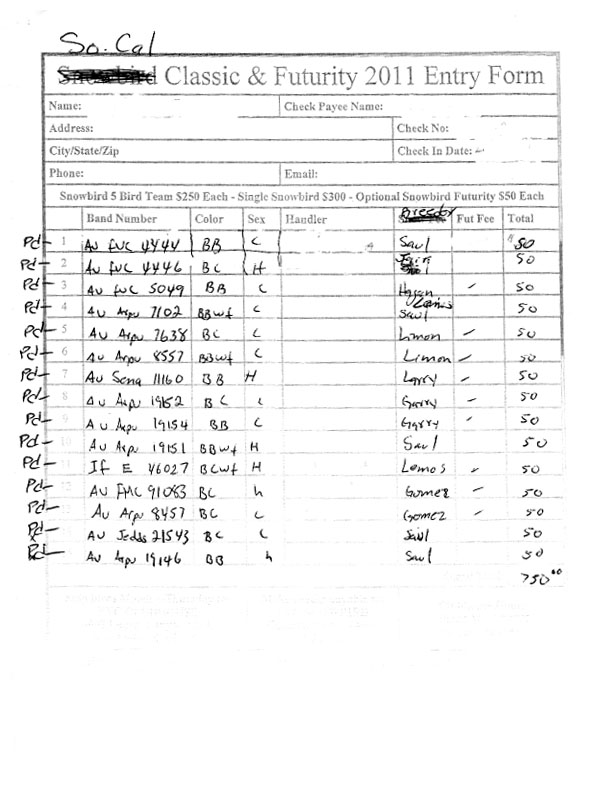 So. Cal
Classic & Futurity 2011 Entry Form
Name: Check Payee Name:
Address: Check No:
City/State/Zip Check In Date:
Phone: Email:
Snowbird 5 Bird Team $250 Each - Single Snowbird $300 - Optional Snowbird Futurity $50 Each
Band Number Color Sex Handler Breeder Fut Fee Total
Pd- 1 Au FVC 4444 BB C Saul $50
Pd- 2 Au FVC 4446 BC H 50
Pd- 3 Au FVC 5049 BB C - 50
Pd- 4 Au Arpu 7102 BBwf C Saul 50
Pd- 5 Au Arpu 7638 BC C Limon - 50
Pd- 6 Au Arpu 8557 BBwf C Limon - 50
Pd- 7 Au Seng 11160 BB H Larry - 50
Pd- 8 Au Arpu 19152 BC C Garry - 50
Pd- 9 Au Arpu 19154 BB C Garry - 50
Pd- 10 Au Arpu 19151 BBwf H Saul 50
Pd- 11 If E 46027 BCwf H Lemos - 50
Pd- 12 AU FMC 91083 BC h Gomez - 50
Pd- Au Arpu 8457 BC C Gomez - 50
Pd- AU Jedds 21543 BC C Saul 50
Pd- Au Arpu 19146 BB h Saul 50
750.00